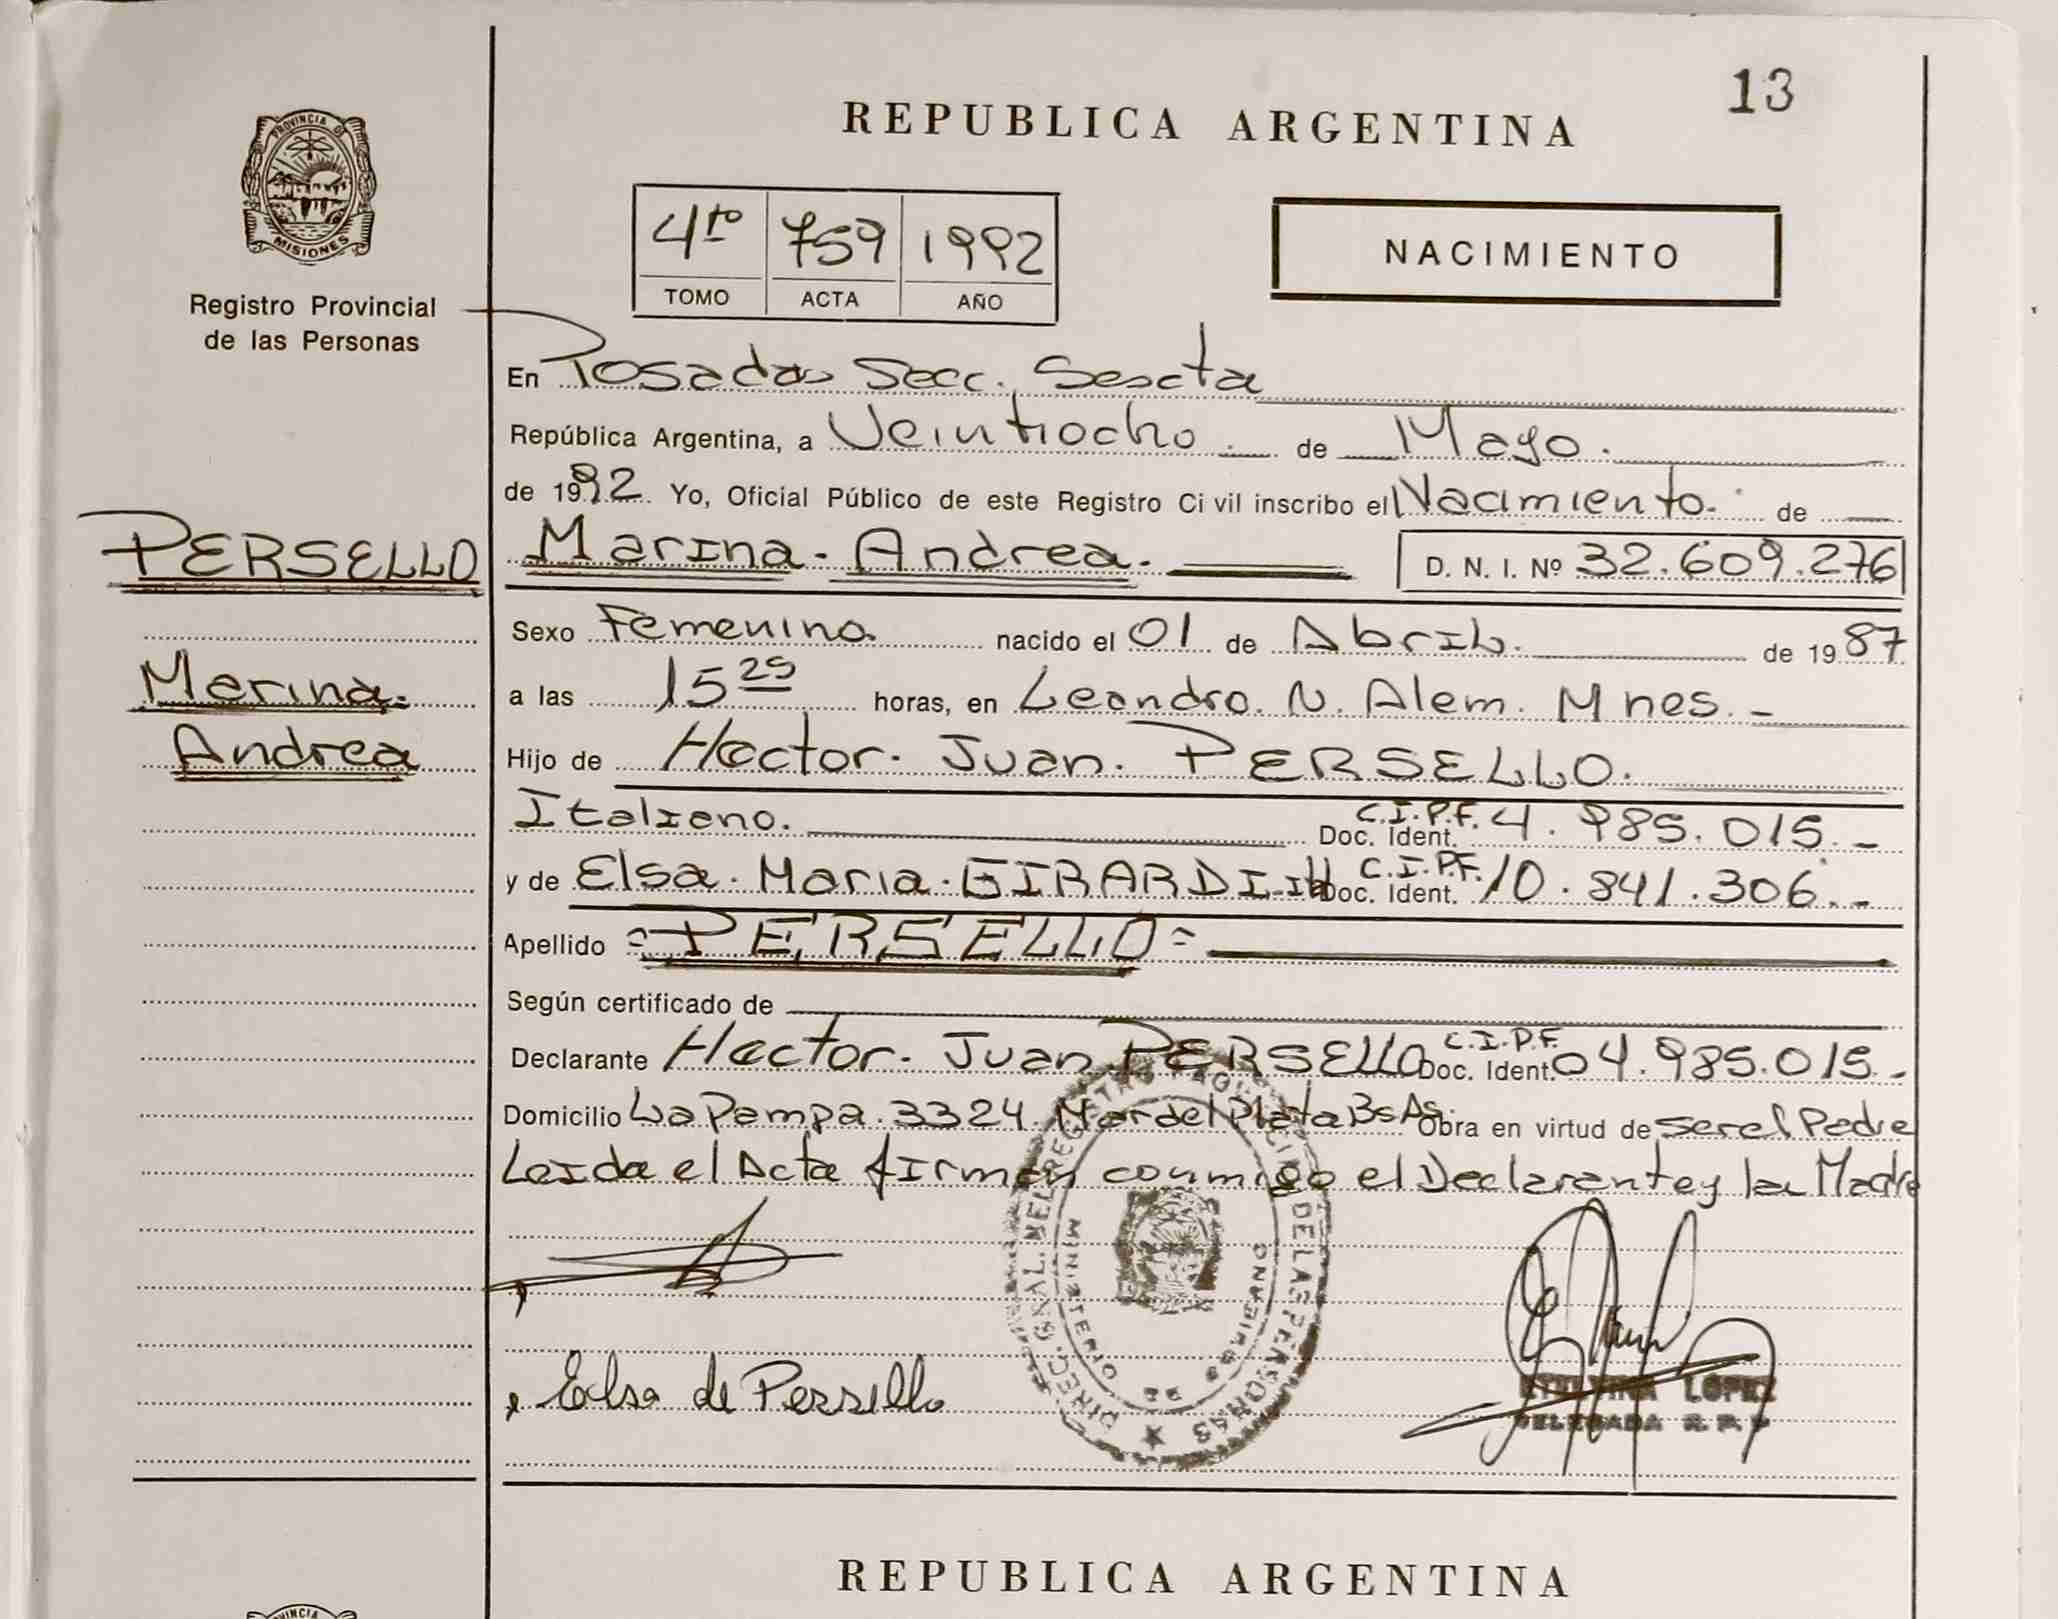 13
REPUBLICA ARGENTINA
PROVINCIA DE
MISIONES
Registro Provincial
de las Personas
4to 759 1992
TOMO ACTA AÑO
NACIMIENTO
En Posadas Secc. Sescta
República Argentina, a Veintiocho de Mayo.
de 1992 Yo, Oficial Público de este Registro Civil inscribo el Nacimiento. de
PERSELLO
Marina
Andrea
Marina. Andrea. D. N. I. Nº 32.609.276
Sexo Femenino. nacido el 01 de Abril. de 1987
a las 15 25 horas, en Leandro. N. Alem. Mnes.-
Hijo de Hector. Juan. PERSELLO.
Italiano. Doc. Ident. C.I.P.F. 4.985.015.-
y de Elsa. Maria. GIRARDI Doc. Ident. C.I.P.F. 10.841.306.-
Apellido =PERSELLO=
Según certificado de
Declarante Hector. Juan PERSELLO Doc. Ident. C.I.P.F. 04.985.015.-
Domicilio La Pampa. 3324. Mar del Plata Bs As. Obra en virtud de ser el Padre
Leida el Acta firman conmigo el Declarante y la Madre
Elsa de Persello
DIREC. GRAL. DEL REGISTRO PROVINCIAL DE LAS PERSONAS
MINISTERIO DE GOBIERNO
LOPEZ
DELEGADA R. P. P
REPUBLICA ARGENTINA